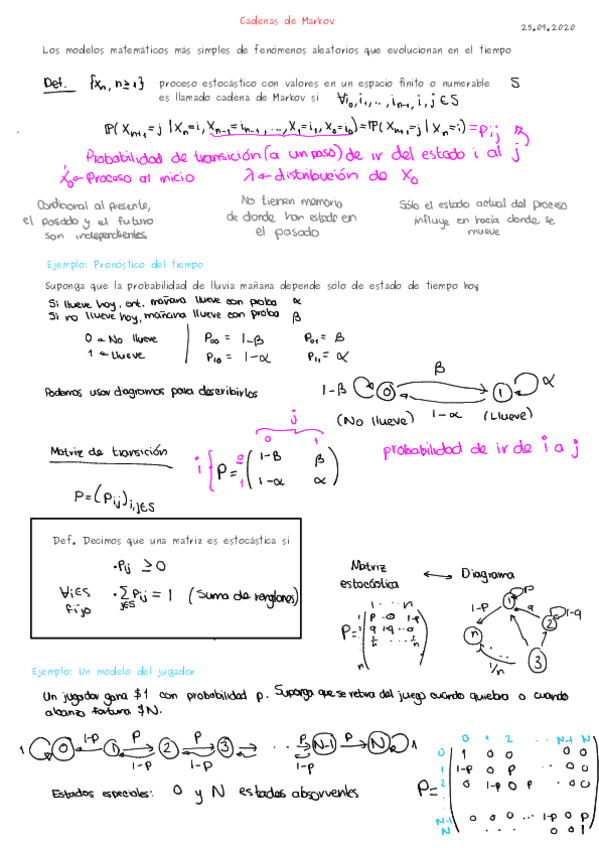 Cadenas de Markov
25.09.2020
Los modelos matemáticos más simples de fenómenos aleatorios que evolucionan en el tiempo
Def. {Xn, n≥1} proceso estocástico con valores en un espacio finito o numerable S
es llamado cadena de Markov si ∀i₀,i₁,..,iₙ₋₁,i,j∈S
IP(Xₙ₊₁=j | Xₙ=i, Xₙ₋₁=iₙ₋₁,...,X₁=i₁,X₀=i₀)=IP(Xₙ₊₁=j | Xₙ=i)=Pij
Probabilidad de transición (a un paso) de ir del estado i al j
X₀←Proceso al inicio λ←distribución de X₀
Condicional al presente,
el pasado y el futuro
son independientes
No tienen memoria
de donde han estado en
el pasado
Sólo el estado actual del proceso
influye en hacia donde se
mueve
Ejemplo: Pronóstico del tiempo
Suponga que la probabilidad de lluvia mañana depende sólo de estado de tiempo hoy
Si llueve hoy, ent. mañana llueve con proba α
Si no llueve hoy, mañana llueve con proba β
0 ← No llueve P₀₀ = 1-β P₀₁ = β
1 ← Llueve P₁₀ = 1-α P₁₁ = α
Podemos usar diagramas para describirlos
1-β 0 β 1 α
(No llueve) 1-α (Llueve)
j
0 1
Matriz de transición i { P= 0 1-β β
1 1-α α
probabilidad de ir de i a j
P=(Pij)i,j∈S
Def. Decimos que una matriz es estocástica si
·Pij ≥0
∀i∈S fijo ·∑j∈S Pij = 1 (Suma de renglones)
Matriz estocástica ↔ Diagrama
1 ... n
1 P ·0 1-p
P= q 1-q ··0
n
1-p 1 p q 2 1-q
n 3
1/n
Ejemplo: Un modelo del jugador
Un jugador gana $1 con probabilidad p. Suponga que se retira del juego cuando quiebra o cuando
alcanza fortuna $N.
1 0 1-p 1 p 2 p 3 ... p N-1 p N 1
1-p 1-p 1-p
Estados especiales: 0 y N estados absorventes
0 1 2 ... N-1 N
0 1 0 0 ·· 0 0
1 1-p 0 p ·· 0 0
P= 2 0 1-p 0 p ·· 0 0
N-1 0 0 0 ... 1-p 0 p
N ... 0 0 1